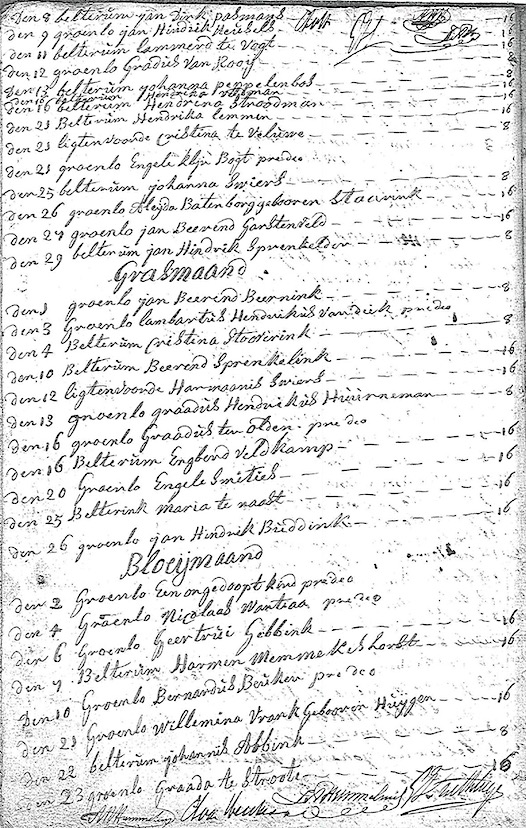 Den 8 belterum jan Dirk pasmans 16
den 9 groenlo jan Hindrik Heisels 16
den 11 belterum lammerd te Vogt 16
den 12 groenlo Gradus Van Rooy 8
Den 13 belterum johanna peppelenbos 16
den 16 belterum Hendrina Stroodman 16
den 21 Belterum Hendrika lemmen 8
den 21 ligtenvoorde Cristina te Veluwe
den 21 groenlo Engele klijn Bogt predeo
den 25 belterum johanna Swiers 8
den 26 groenlo Aleyda Batenborg gebooren Staarink 16
den 27 groenlo jan Beerend Garstenveld 16
den 29 belterum jan Hindrik Sprenkelder 8
Grasmaand
den 1 groenlo jan Beerend Beernink 8
den 3 Groenlo lambartus Hendrikus Van dick predeo
den 4 Belterum Cristina Stoverink 8
den 10 Belterum Beerend Sprenkelink 16
den 12 ligtenvoorde Harmaanis Swiers 16
den 13 groenlo graadus Hendrikus Huurneman 8
den 16 groenlo Graadus ten olden predeo
den 16 Belterum Engbend Veldkamp 16
den 20 Groenlo Engele Smities 16
den 25 Belterink maria te naast 16
den 26 groenlo jan Hindrik Buddink 16
Bloeijmaand
den 2 Groenlo Een ongedoopt kind predeo
den 4 Groenlo Nicolaas Wantiaa predeo
den 6 Groenlo Geertrui Gebbink 16
den 9 Belterum Harmen Memmekshorst 16
Den 10 Groenlo Bernardus Beuken predeo
den 21 Groenlo Willemina Vrank Gebooren Huygen 16
den 22 belterum johannis Abbink 8
den 23 groenlo Graada te Stroote 16